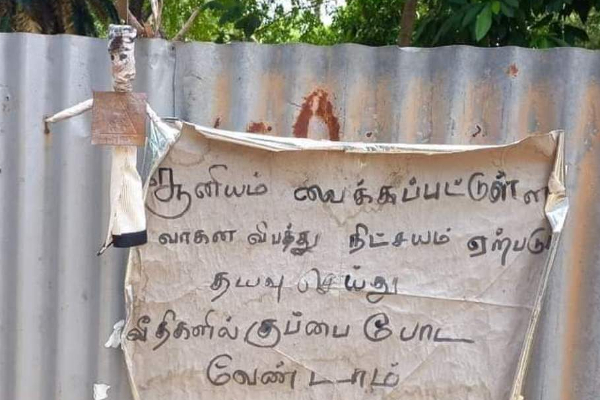 சூனியம் வைக்கப்பட்டுள்ள
வாகன விபத்து நிட்சயம் ஏற்படு
தயவு செய்து
வீதிகளில் குப்பை போட
வேண்டாம்